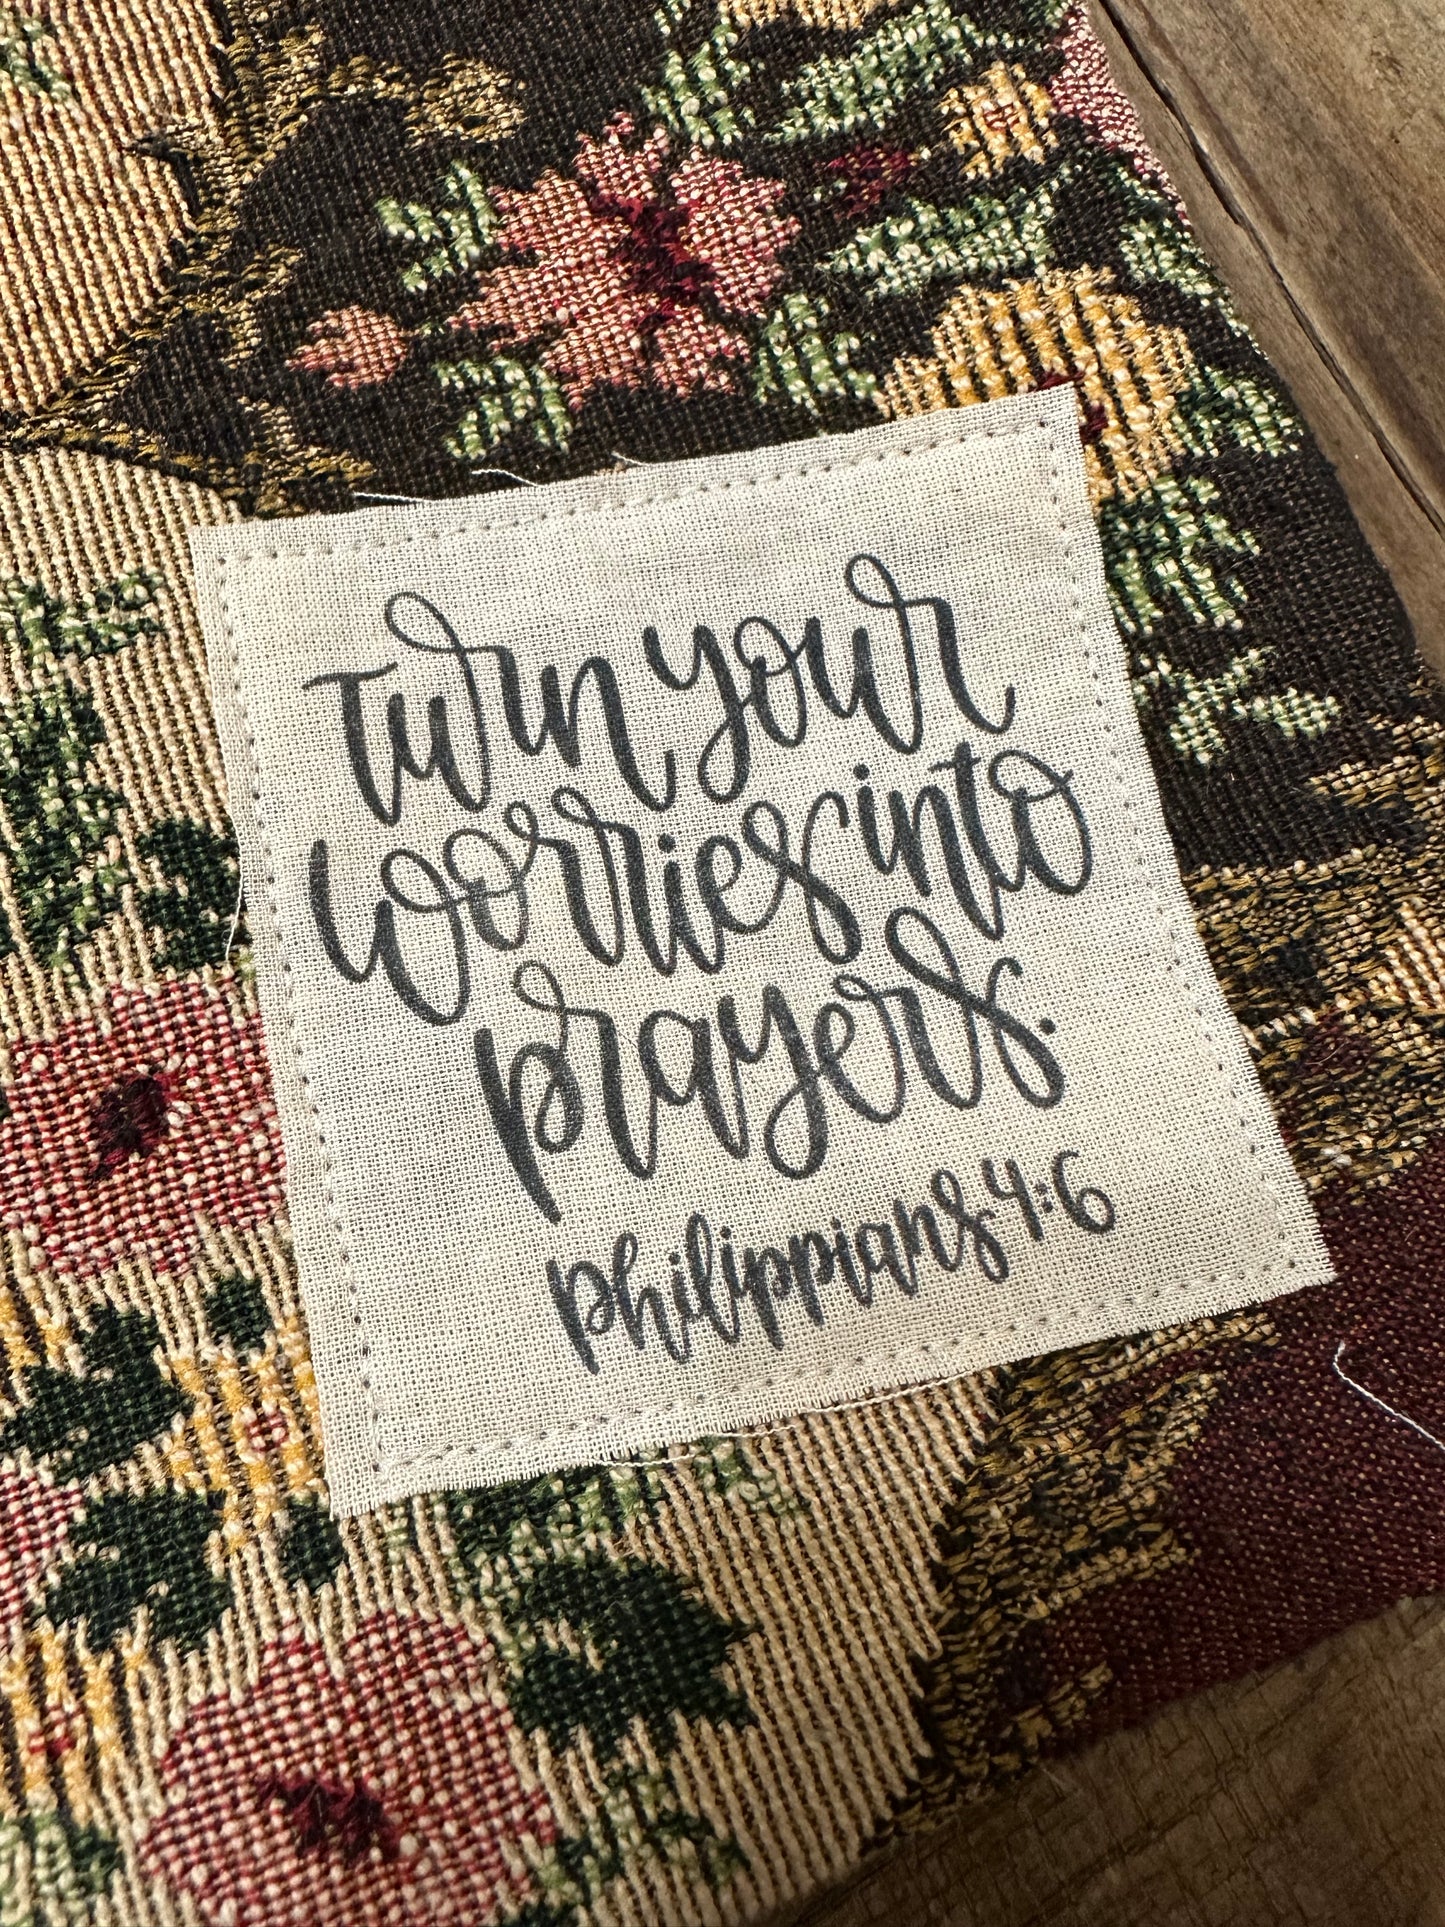 Turn your
worries into
prayers.
Philippians 4:6